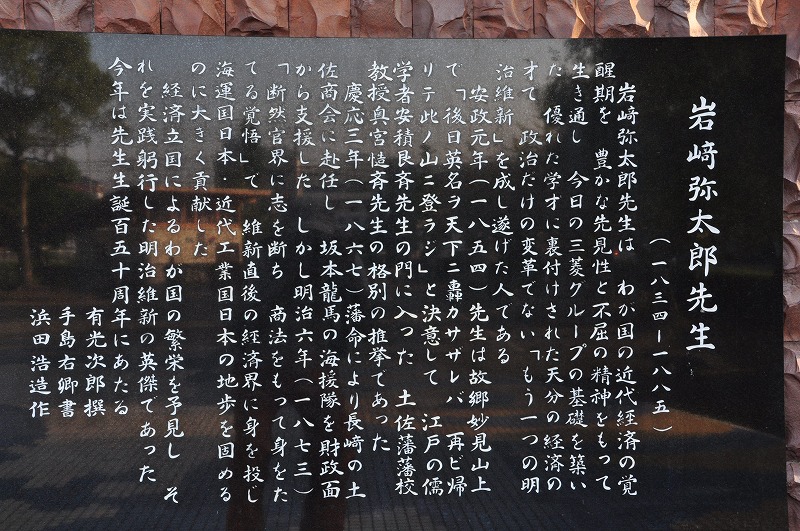 岩﨑弥太郎先生
（一八三四－一八八五）
岩﨑弥太郎先生は　わが国の近代経済の覚
醒期を　豊かな先見性と不屈の精神をもって
生き通し　今日の三菱グループの基礎を築い
た　優れた学才に裏付けされた天分の経済の
才で　政治だけの変革でない「もう一つの明
治維新」を成し遂げた人である
安政元年（一八五四）先生は故郷妙見山上
で「後日英名ヲ天下ニ轟カサザレバ　再ビ帰
リテ此ノ山ニ登ラジ」と決意して　江戸の儒
学者安積艮斉先生の門に入った　土佐藩藩校
教授奥宮慥斉先生の格別の推挙であった
慶応三年（一八六七）藩命により長﨑の土
佐商会に赴任し　坂本龍馬の海援隊を財政面
から支援した　しかし明治六年（一八七三）
「断然官界に志を断ち　商法をもって身をた
てる覚悟」で　維新直後の経済界に身を投じ
海運国日本・近代工業国日本の地歩を固める
のに大きく貢献した
経済立国によるわが国の繁栄を予見し　そ
れを実践躬行した明治維新の英傑であった
今年は先生生誕百五十周年にあたる
有光次郎撰
手島右卿書
浜田浩造作